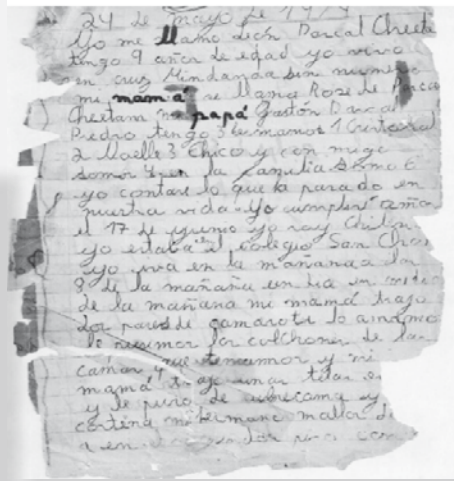 24 de mayo de 197
Yo me llamo León Pascal Cheeta
tengo 9 años de edad yo vivo
en cruz Mindanaa sin numero
me mamá se llama Rose de Pasca
Cheetam mi papá Gastón Pascal
Piedro tengo 3 hermanos 1
2 Maelle 3 Chico y con migo
somos 4 en la familia somo 6
yo contare lo que a pasado en
nuestra vida Yo cumplere años
el 17 de yunio yo soy Chileno
yo estaba el colegio San Char
yo iva en la mañana a las
8 de la mañana un dia en
de la mañana me mamá trajo
dos pares de camarote lo armamo
le pusimos los colchones de las
camas que teniamos y mi
mamá trajo unas telas
y le puso de cubrecama y
cortina mi hermano mallor